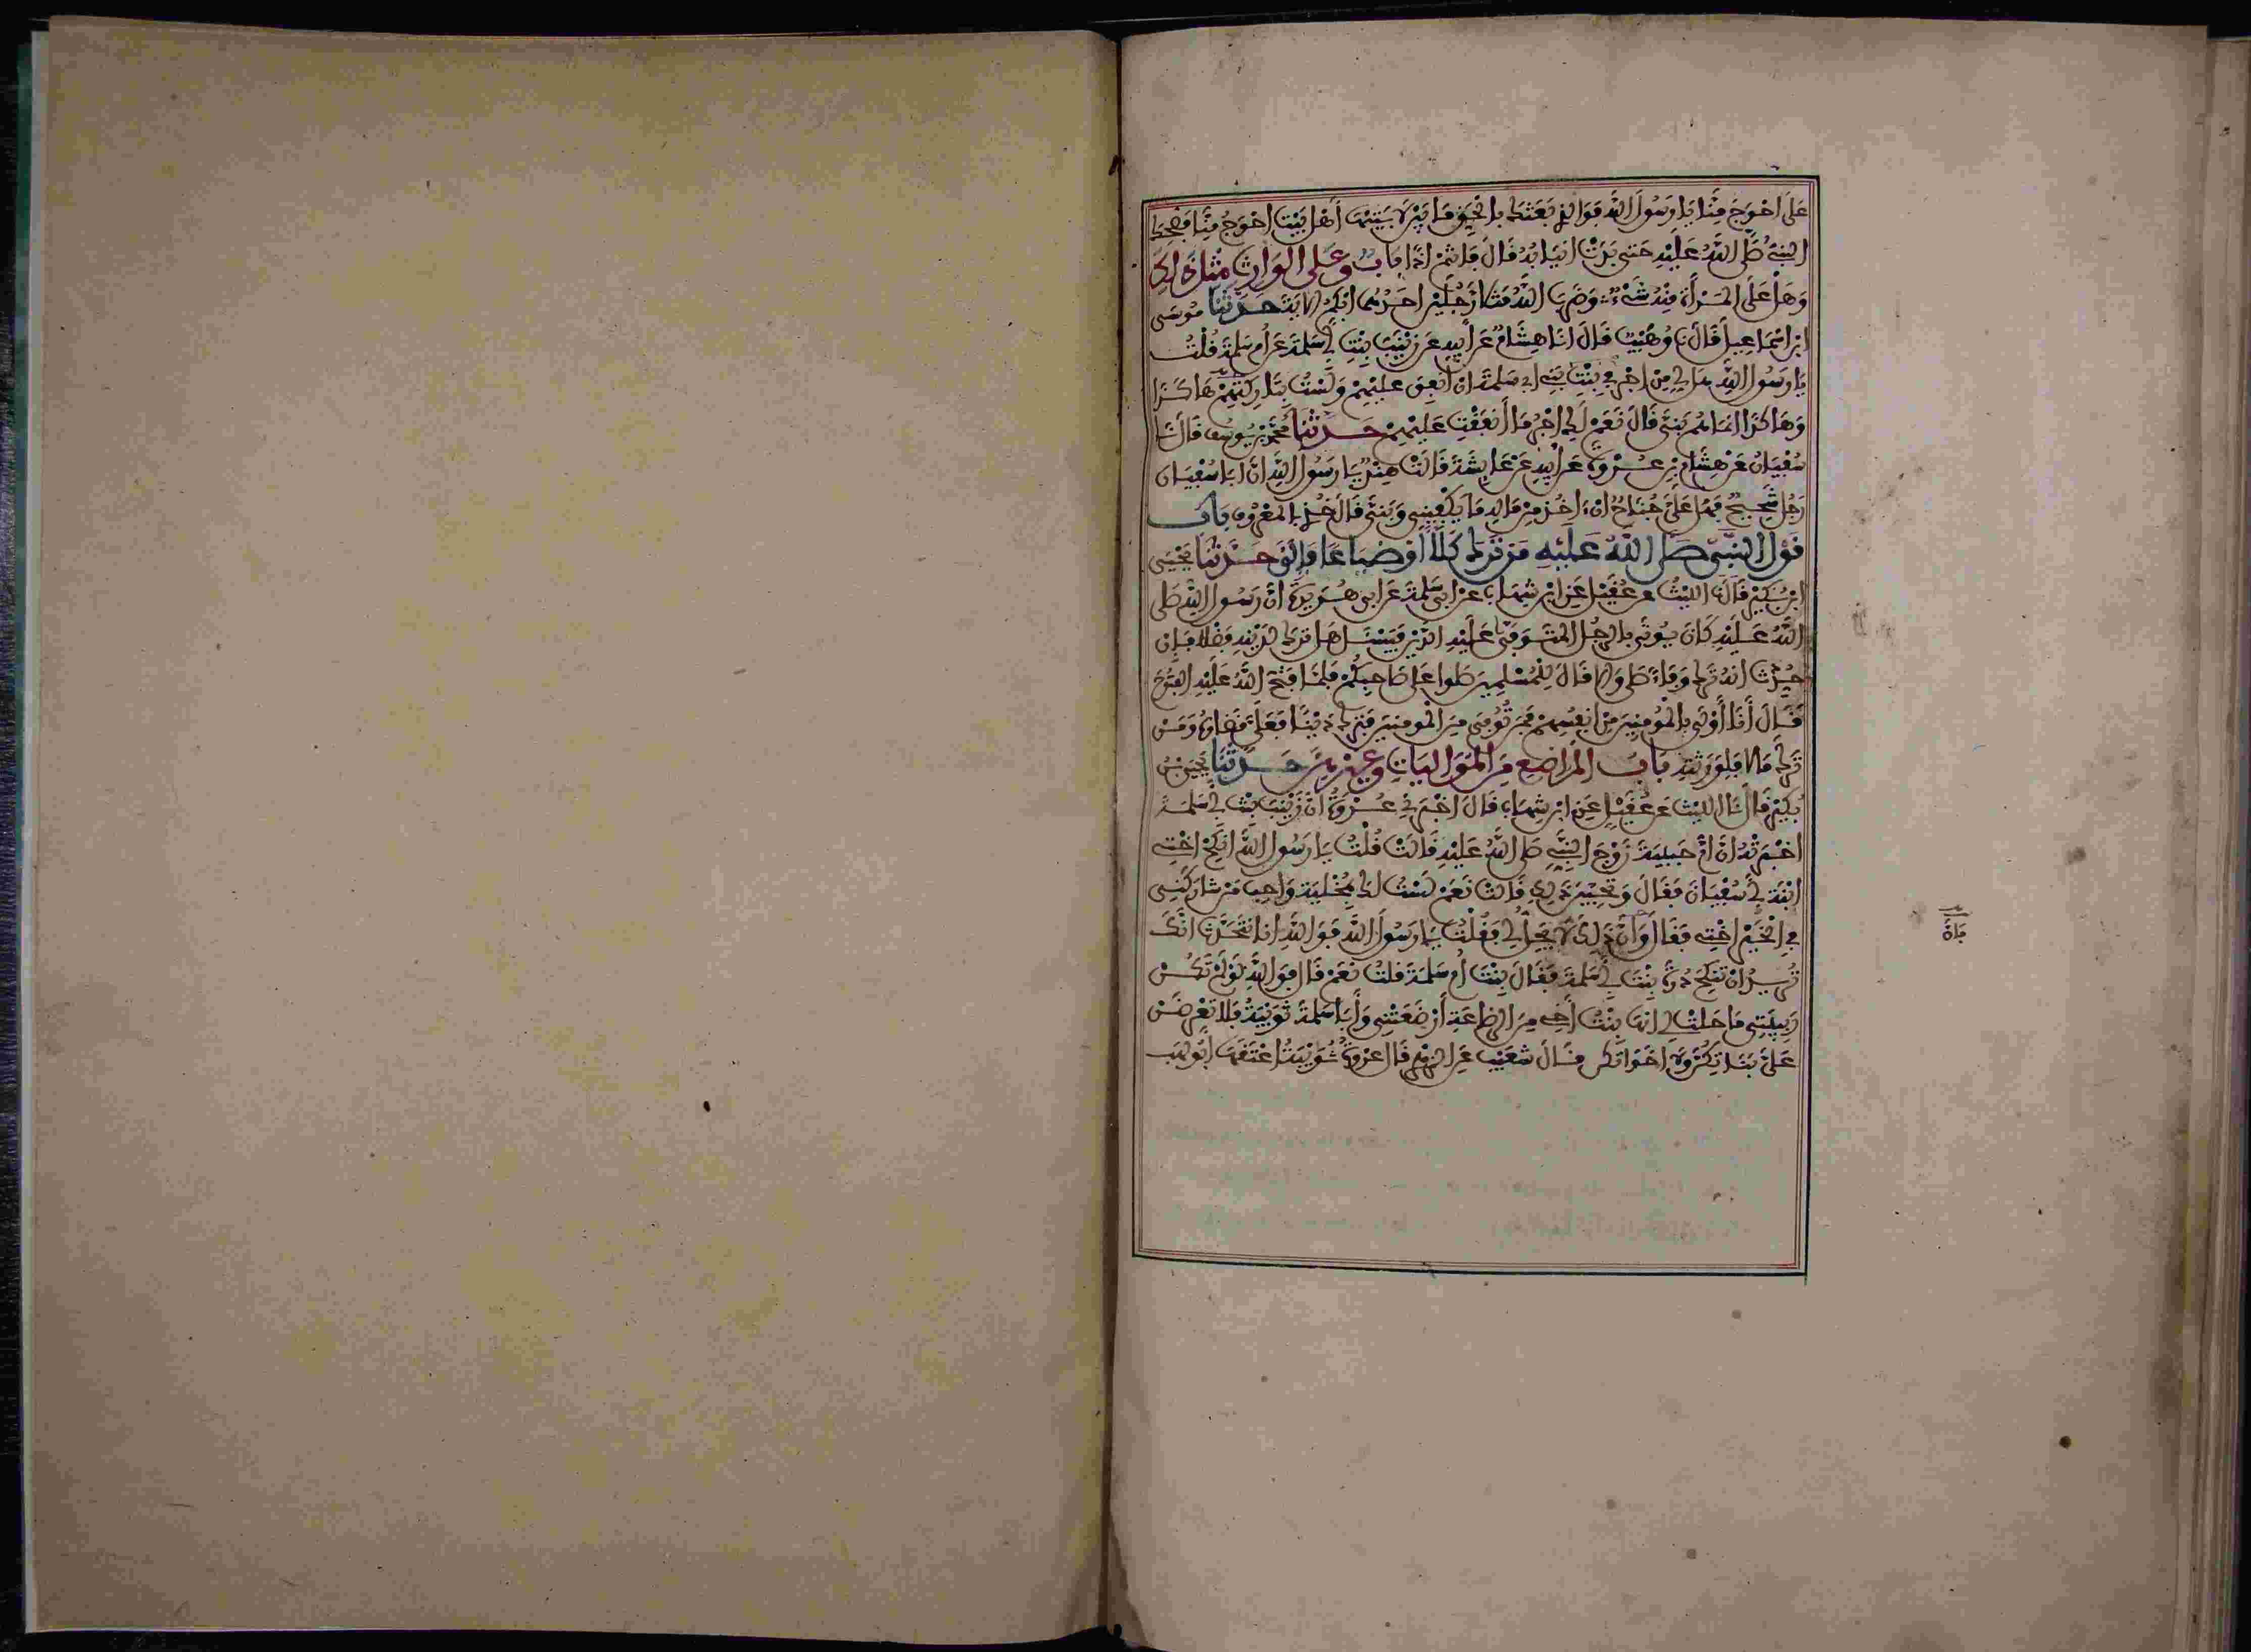 على احوج منا يا رسول الله فوالذي بعثك بالحق ما بين لابتيها أهل بيت احوج منا فضحك
النبي صلى الله عليه حتى بدت انيابه قال فانتم اذا باب وعلى الوارث مثل ذالك
وهل على المرأة منه شيء وضرب الله مثلا رجلين احدهما ابكم الاية حدثنا موسى
ابن اسماعيل قال نا وهيب قال انا هشام عن أبيه عن زينب بنت أبي سلمة عن أم سلمة قلت
يا رسول الله هل لي من اجر في بنى ابي سلمة ان انفق عليهم ولست بتاركتهم هاكذا
وهاكذا انما هم بني قال نعم لك اجر ما أنفقت عليهم حدثنا محمد بن يوسف قال نا
سفيان عن هشام بن عروة عن أبيه عن عايشة قالت هند يا رسول الله ان ابا سفيان
رجل شحيح فهل علي جناح ان اخذ من ماله ما يكفيني وبني قال خذي بالمعروف باب
قول النبي صلى الله عليه من ترك كلا أو ضياعا فإلي حدثنا يحيى
ابن بكير قال نا الليث عن عقيل عن ابن شهاب عن ابي سلمة عن ابي هريرة ان رسول الله صلى
الله عليه كان يوتى بالرجل المتوفى عليه الدين فيسئل هل ترك لدينه فضلا فإن
حدث انه ترك وفاء صلى والا قال للمسلمين صلوا على صاحبكم فلما فتح الله عليه الفتوح
قال أنا أولى بالمؤمنين من انفسهم فمن توفي من المومنين فترك دينا فعلي قضاؤه ومن
ترك مالا فلورثته باب المراضع من المواليات وغيرهن حدثنا يحيى بن
بكير قال نا الليث عن عقيل عن ابن شهاب قال اخبرني عروة ان زينب بنت أبي سلمة
اخبرته ان أم حبيبة زوج النبي صلى الله عليه قالت قلت يا رسول الله انكح اختي
ابنة أبي سفيان فقال وتحبين ذلك قالت نعم لست لك بمخلية واحب من شاركني
في الخير اختي فقال أن ذلك لا يحل لي فقلت يا رسول الله فوالله انا نتحدث انك
تريد ان تنكح درة بنت أبي سلمة فقال بنت أم سلمة قلت نعم قال فوالله لو لم تكن
ربيبتي ما حلت لي انها بنت أخي من الرضاعة أرضعتني وأبا سلمة ثويبة فلا تعرضن
علي بناتكن ولا اخواتكن وقال شعيب عن الزهري قال عروة ثويبة اعتقها ابو لهب